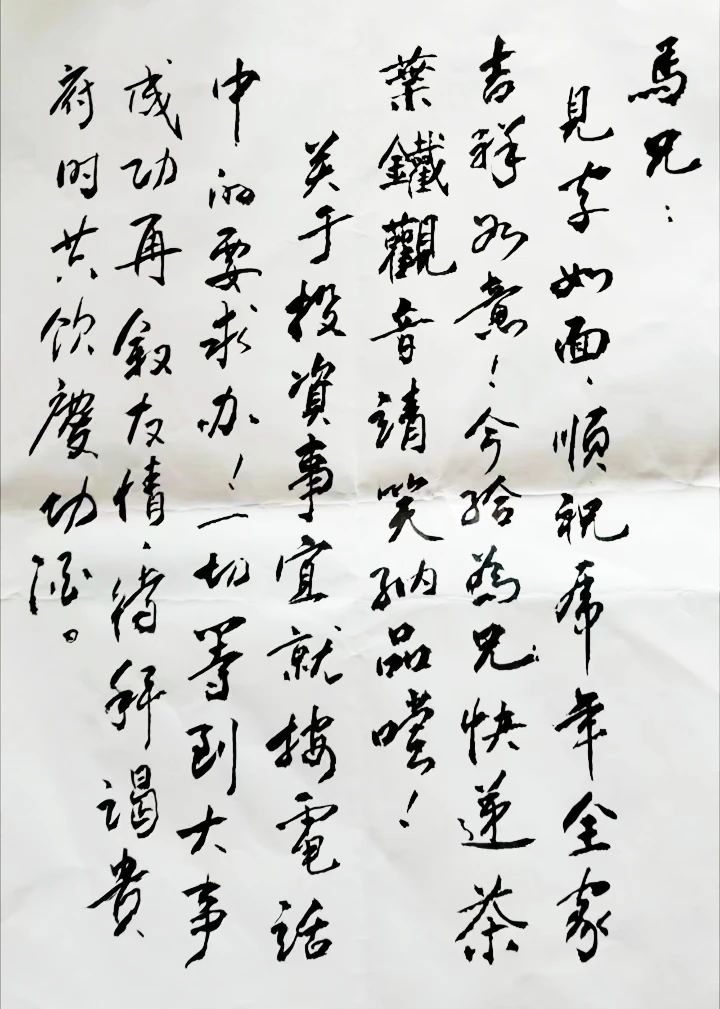 馬兄：
見字如面、順祝虎年全家
吉祥如意！今给為兄快递茶
葉鐵觀音請笑納品嚐！
关于投資事宜就按電話
中的要求办！一切等到大事
成功再叙友情、待拜謁貴
府时共饮慶功酒。